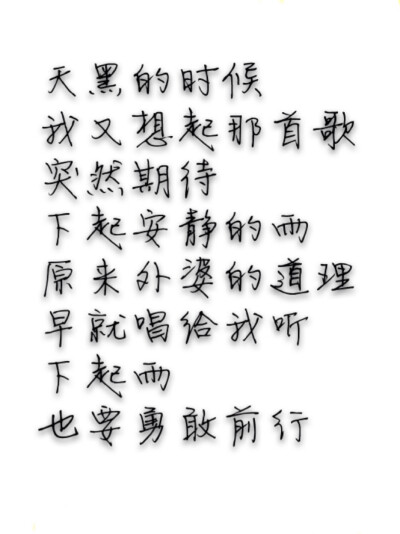 天黑的时候
我又想起那首歌
突然期待
下起安静的雨
原来外婆的道理
早就唱给我听
下起雨
也要勇敢前行